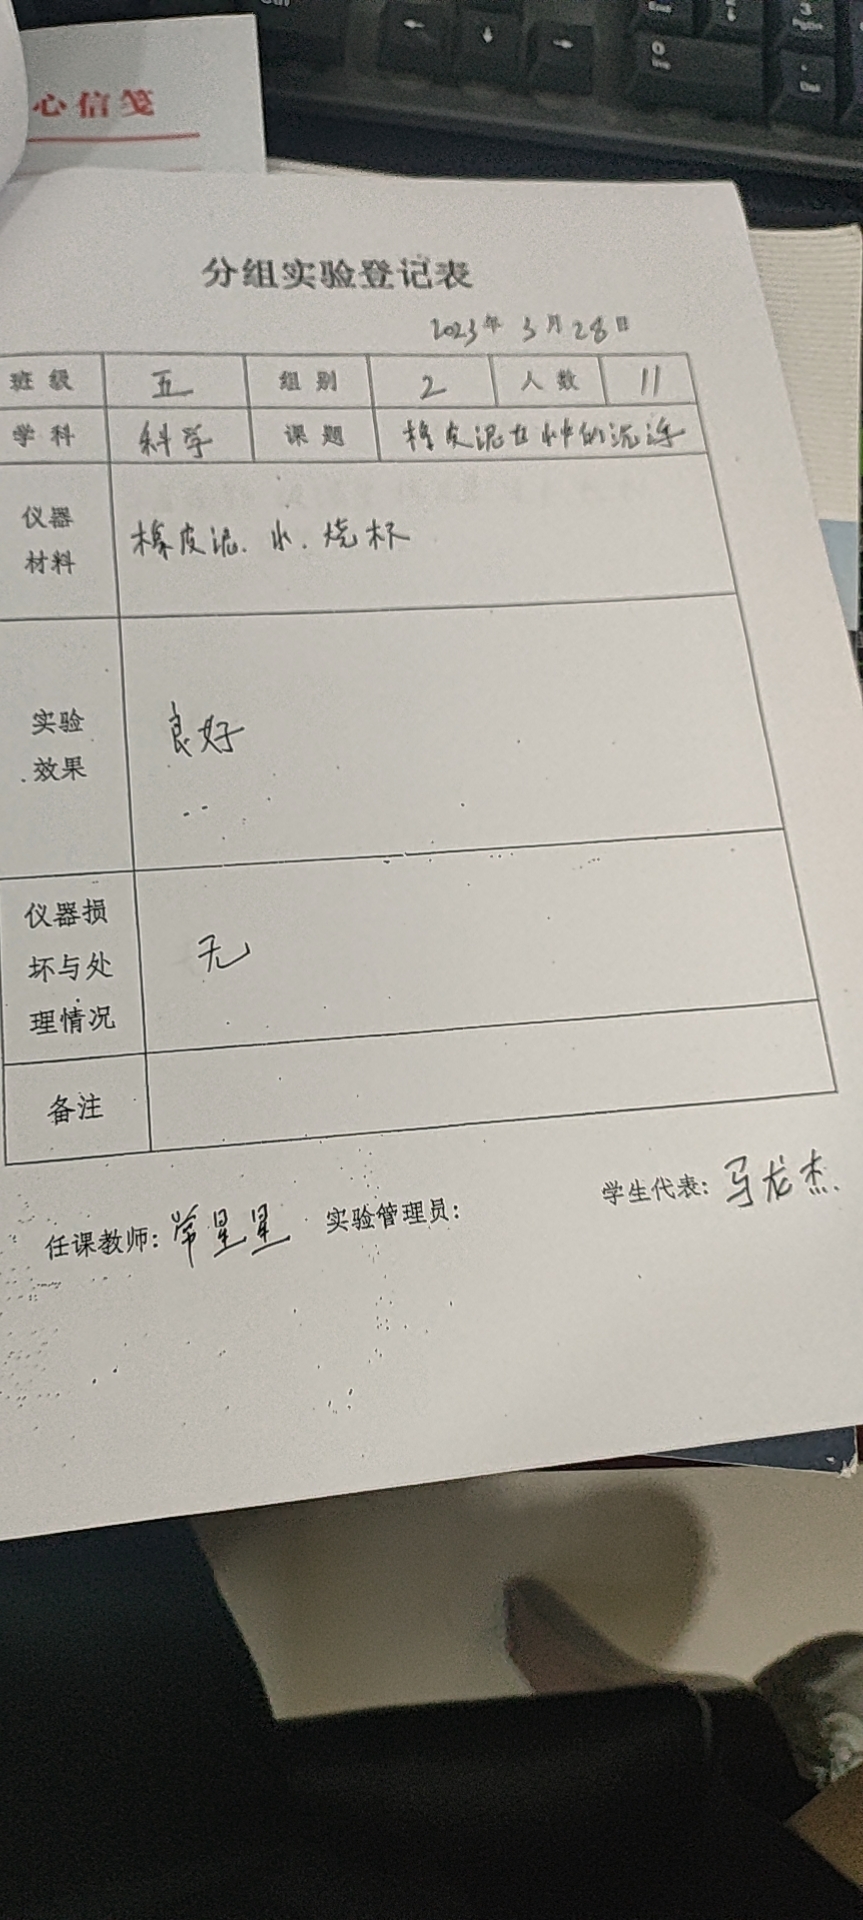 心信笺
分组实验登记表
2023年 3月28日
班级 五 组别 2 人数 11
学科 科学 课题 橡皮泥在水中的沉浮
仪器材料 橡皮泥、水、烧杯
实验效果 良好
仪器损坏与处理情况 无
备注
任课教师: 常星星 实验管理员: 学生代表: 马龙杰